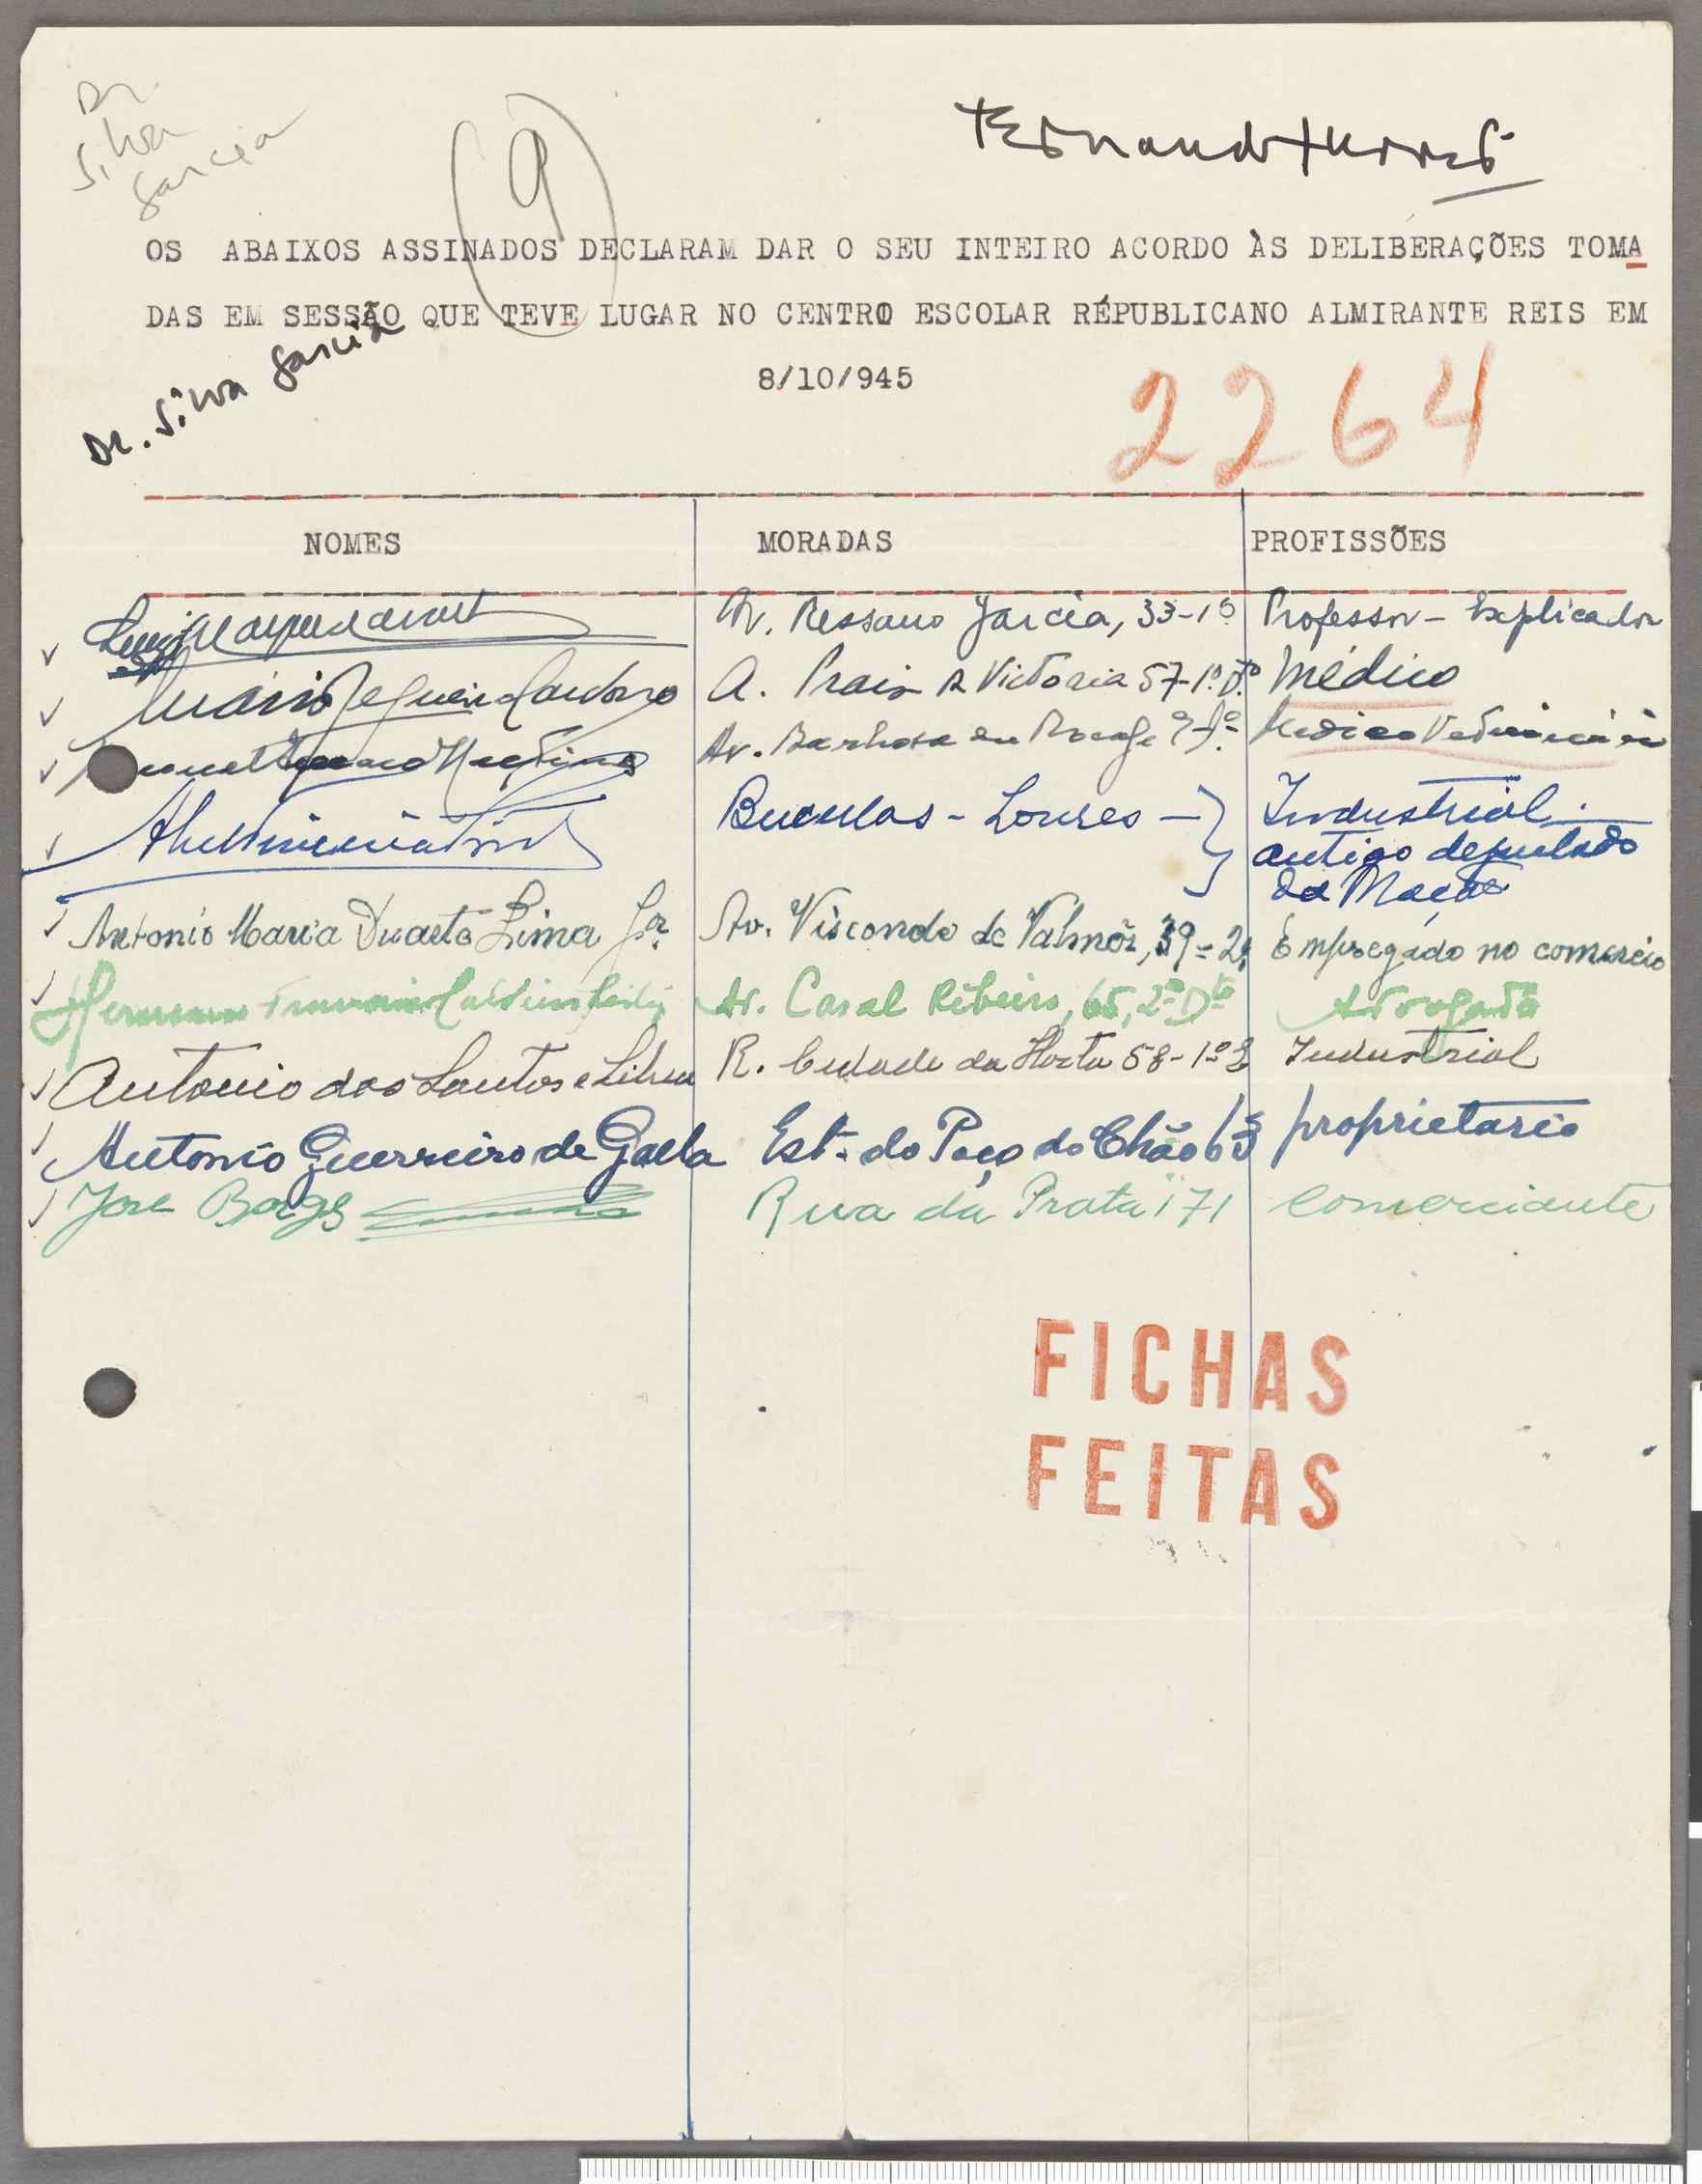 Dr. Silva Garcia
(9)
OS ABAIXOS ASSINADOS DECLARAM DAR O SEU INTEIRO ACORDO ÀS DELIBERAÇÕES TOMA
DAS EM SESSÃO QUE TEVE LUGAR NO CENTRO ESCOLAR RÉPUBLICANO ALMIRANTE REIS EM
8/10/945
Dr. Silva Garcia
2264
NOMES MORADAS PROFISSÕES
Av. Ressano Garcia, 33-1º Professor - Explicador
Mário Cardoso A. Praia da Victoria 57-1º D.º Médico
Av. Barbosa du Bocage Medico Veterinário
Bucelas - Loures - Industrial
antigo deputado
da Naçao
Antonio Maria Duarte Lima Jor. Av. Visconde de Valmôr, 39 = 2º Empregado no comercio
Av. Casal Ribeiro, 65, 2º Dto Advogado
Antonio dos Santos e Silva R. Cidade da Horta 58-1º E Industrial
Antonio Guerreiro de Galla Est. do Poço do Chão 63 proprietario
José Borges Rua da Prata 171 Comerciante
FICHAS
FEITAS